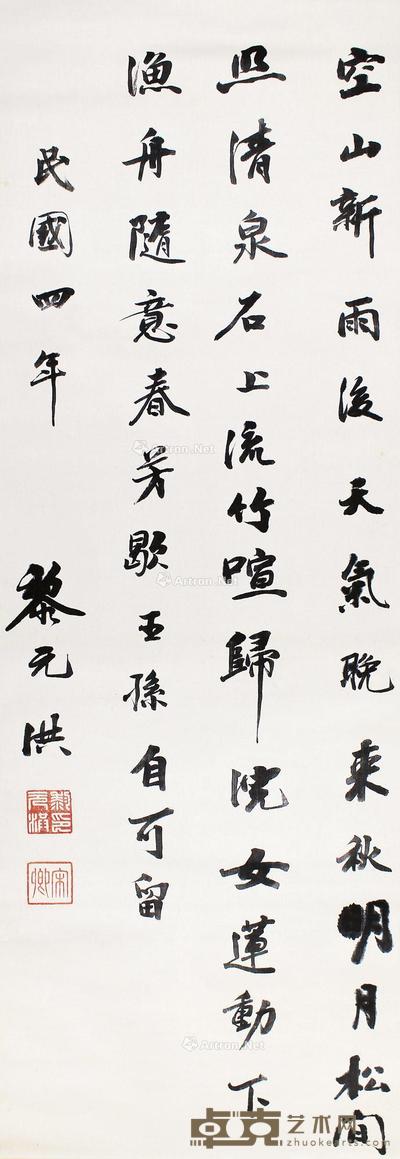 空山新雨後天氣晚来秋明月松间
照清泉石上流竹喧歸浣女蓮動下
漁舟隨意春芳歇王孫自可留
民國四年
黎元洪
黎元洪印
宋卿
Artron.Net
Artron.Net
Artron.Net
卓克艺术网
zhuokearts.com